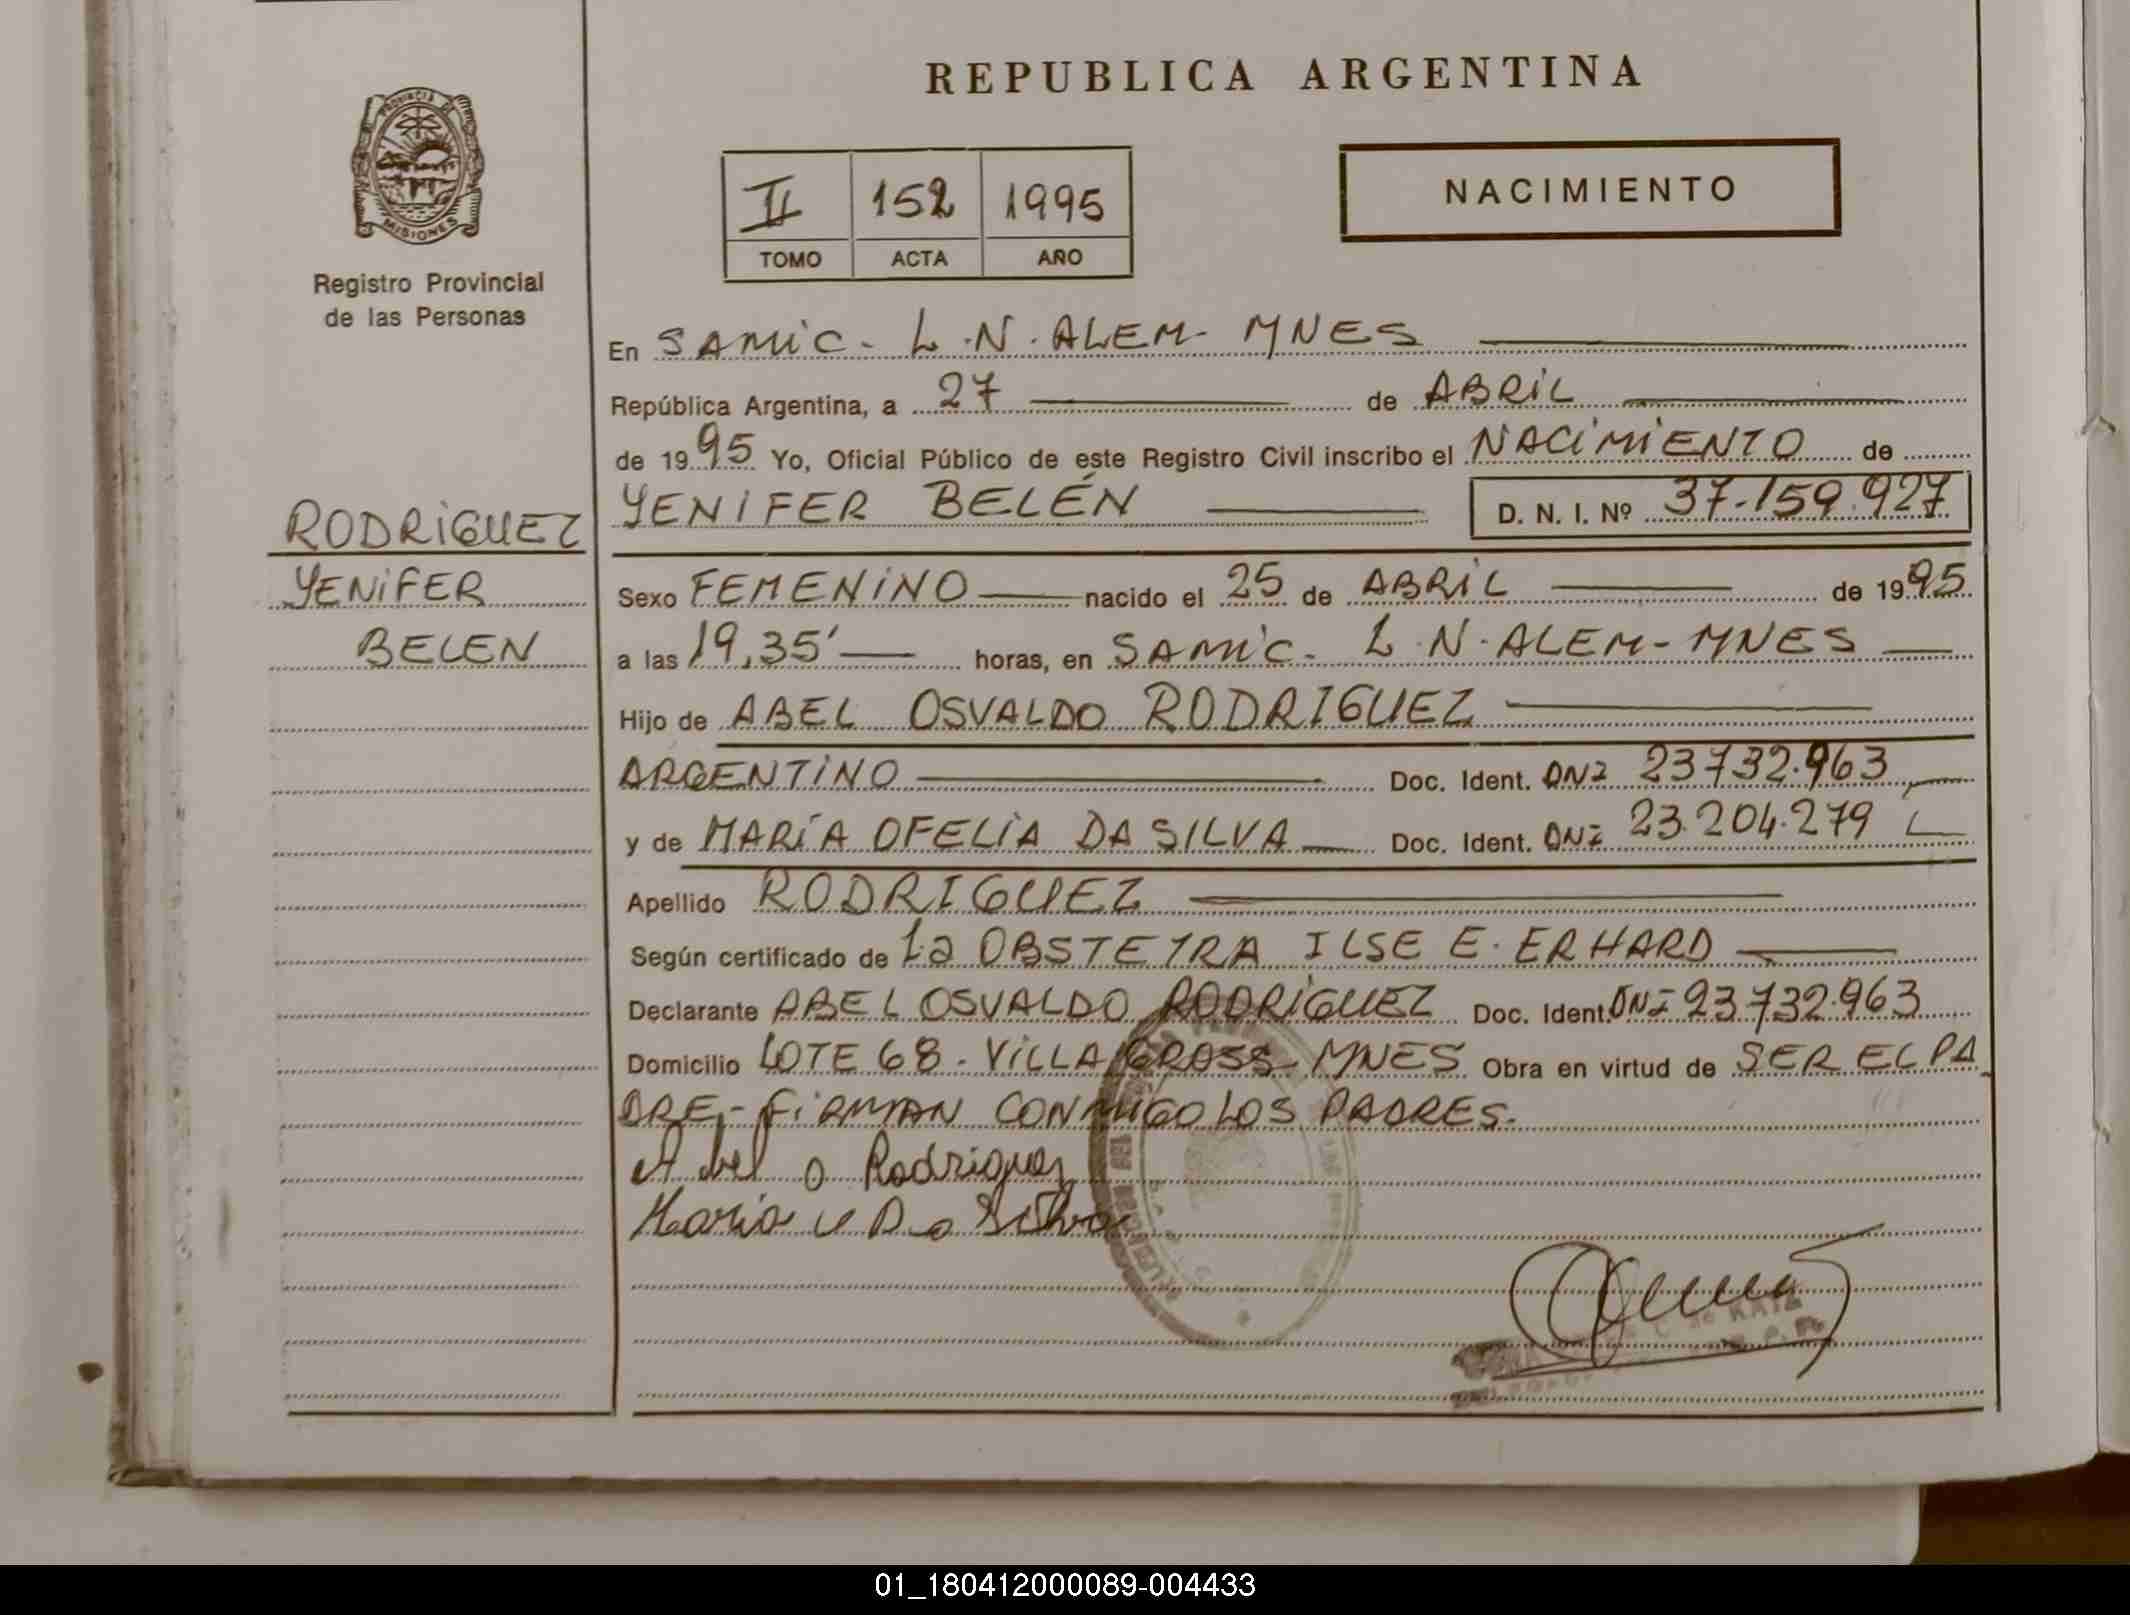 REPUBLICA ARGENTINA
PROVINCIA DE
MISIONES
Registro Provincial
de las Personas
II 152 1995
TOMO ACTA AÑO
NACIMIENTO
En SAMIC - L.N. ALEM - MNES
República Argentina, a 27 de ABRIL
de 1995 Yo, Oficial Público de este Registro Civil inscribo el NACIMIENTO de
YENIFER BELÉN D. N. I. Nº 37.159.927
RODRIGUEZ
YENIFER
BELEN
Sexo FEMENINO nacido el 25 de ABRIL de 1995
a las 19,35' horas, en SAMIC - L.N. ALEM - MNES
Hijo de ABEL OSVALDO RODRIGUEZ
ARGENTINO Doc. Ident. DNI 23732.963
y de MARÍA OFELIA DA SILVA Doc. Ident. DNI 23.204.279
Apellido RODRIGUEZ
Según certificado de La OBSTETRA ILSE E. ERHARD
Declarante ABEL OSVALDO RODRIGUEZ Doc. Ident. DNI 23732.963
Domicilio LOTE 68 - VILLA GROSS - MNES Obra en virtud de SER EL PA
DRE - FIRMAN CONMIGO LOS PADRES.
Abel O Rodriguez
Maria Da Silva
01_180412000089-004433